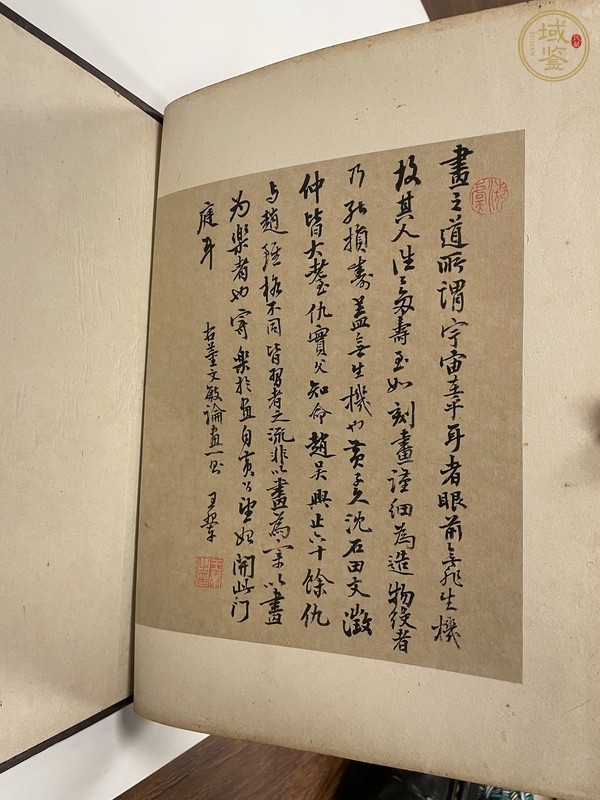 畫之道所謂宇宙在乎耳者眼前無非生機
故其人往々多壽至如刻畫謹細為造物役者
乃能損壽蓋無生機也黃子久沈石田文徵
仲皆大耋仇實父知命趙吳興止六十餘仇
与趙雖格不同皆習者之流非以畫為寄以畫
為樂者也寄樂於畫自黃公望始開此门
庭耳
右董文敏論畫一則 王翬
域鉴